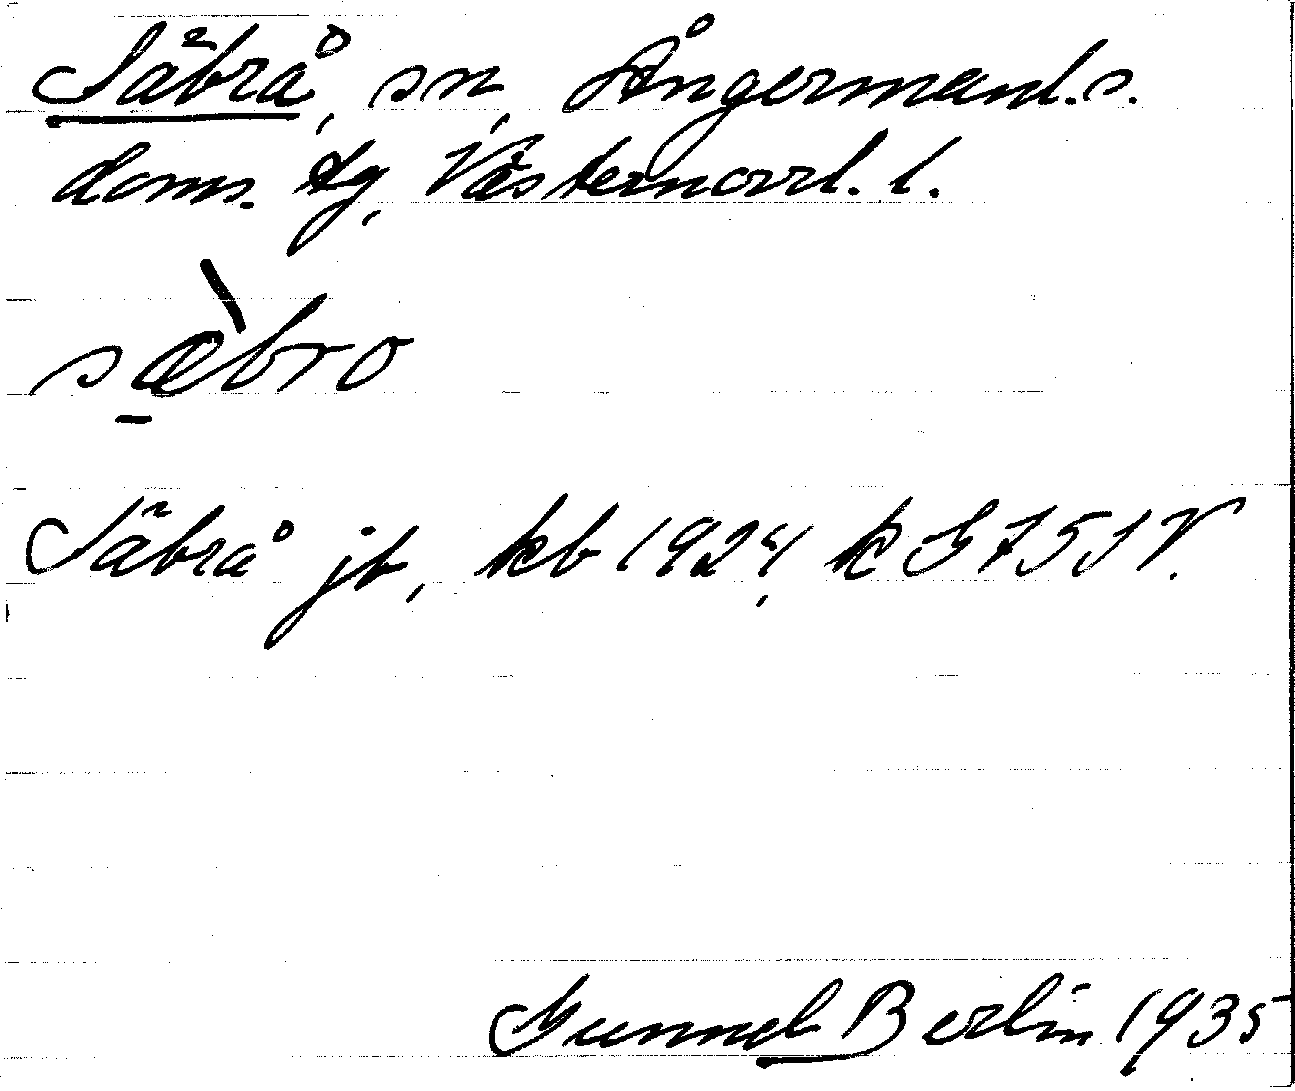 Säbrå, sn, Ångermanl. s.
doms. tg, Västernorrl. l.
sæ̱̀bro
Säbrå jb, kb 1924, k G 7 51 V.
Gunnel Berlin 1935